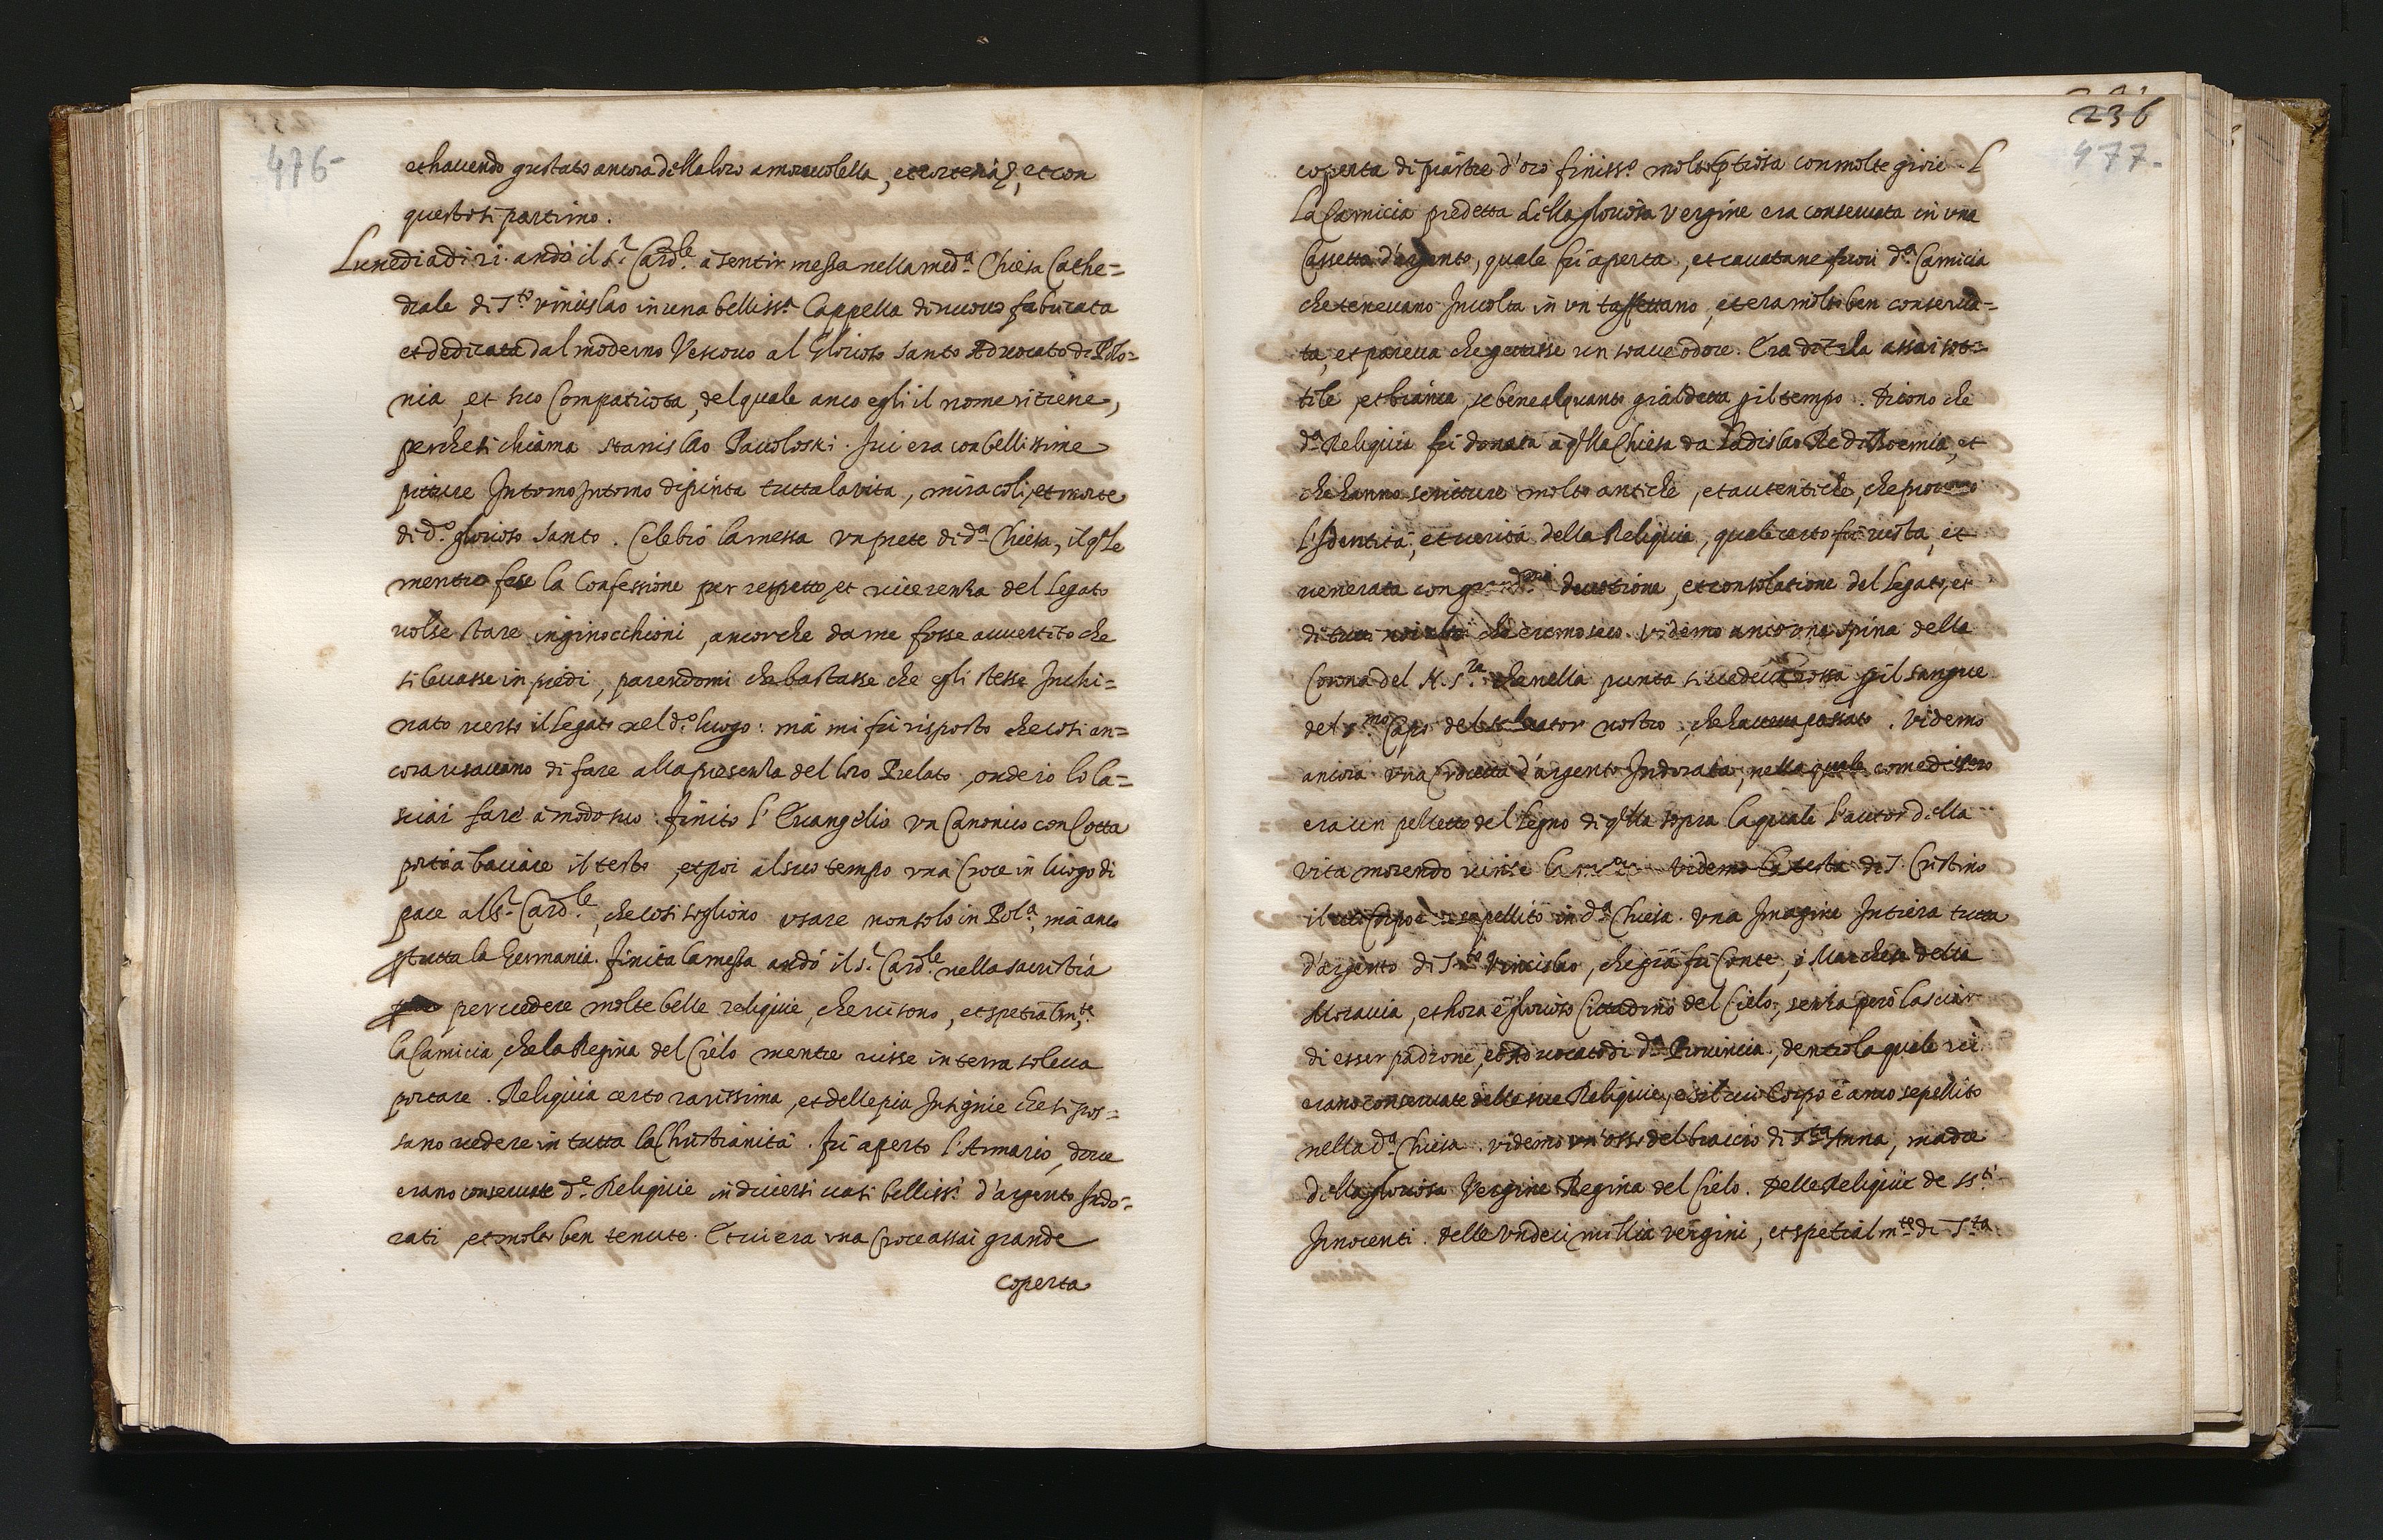 476-
et havendo gustato ancora della loro amorevolezza, et cortesia, et con
questo si partimo.
Lunedi a di 21. andò il S.r Card.le à sentir messa nella med.a Chiesa Cathe=
drale di S.to Vinislao in una belliss.a Cappella di nuovo fabricata
et dedicata dal moderno Vescovo al Glorioso Santo Advocato di Polo=
nia, et suo Compatriota, del quale anco egli il nome ritiene,
perche si chiama Stanislao Pavoloski. Ivi era con bellissime
pitture Intorno Intorno dipinta tutta la vita, miracoli, et morte
di d.o glorioso Santo. Celebrò la messa un prete di d.a Chiesa, il q.le
mentre fece la Confessione per rispetto, et riverenza del Legato
volse stare inginocchioni, ancorche da me fosse avvertito che
si levasse in piedi, parendomi che bastasse che egli stesse Inchi=
nato verso il Legato nel d.o luogo: mà mi fù risposto che così an=
cora usavano di fare alla presenza del loro Prelato, onde io lo la=
sciai fare à modo suo. finito l'Evangelio un Canonico con Cotta
portò à baciare il testo, et poi al suo tempo una Croce in luogo di
pace al S.r Card.le, che così sogliono usare non solo in Pol.a, mà anco
p tutta la Germania. finita la messa andò il S.r Card.le nella sacristia
per vedere molte belle reliquie, che vi sono, et spetialm.te
la Camicia, che la Regina del Cielo mentre visse in terra soleva
portare. Reliquia certo rarissima, et delle più Insignie che si pos=
sano vedere in tutta la Christianità. fù aperto l'Armario, dove
erano conservate d.e Reliquie in diversi vasi belliss.i d'argento Indo=
rati, et molto ben tenute. Et vi era una Croce assai grande
coperta
236
477-
coperta di piastre d'oro finiss.o molto sptiosa con molte gioie.
La Camicia predetta della gloriosa Vergine era conservata in una
Cassetta d'argento, quale fù aperta, et cavatane fuori d.a Camicia
che tenevano Involta in un taffettano, et era molto ben conserva=
ta, et pareva che gettasse un soave odore. Era di tela assai sot=
tile, et bianca, se bene alquanto gialdetta p il tempo. Dicono che
d.a Reliquia fù donata à q.lla Chiesa da Ladislao Re di Boemia, et
che hanno scritture molto antiche, et autentiche, che provano
l'Identità, et verità della Reliquia, quale certo fù vista, et
venerata con devotione, et consolatione del Legato, et
di che eremo seco. Videmo anco una spina della
Corona del N. S.re che nella punta si vedeva rossa p il sangue
del S.mo Capo del Salvator nostro, che haveva passato. Videmo
ancora una Crocetta d'argento Indorata, nella quale come dissero
era un pezzetto del Legno di q.lla sopra la quale l'autor della
vita morendo vinse la Videmo la testa di S. Cristino
il cui Corpo è sepellito in d.a Chiesa. Una Imagine Intiera tutta
d'argento di S.to Vincislao, che già fù Conte, ò Marchese della
Moravia, et hora è glorioso Cittadino del Cielo, senza però lasciar
di esser padrone, et Advocato di d.a Provincia, dentro la quale vi
erano conservate delle sue Reliquie, et il suo Corpo è anco sepellito
nella d.a Chiesa. Videmo un'osso del braccio di S.ta Anna, madre
della gloriosa Vergine Regina del Cielo. Delle Reliquie de SS.ti
Innocenti. Delle Undeci millia Vergini, et spetialm.te di S.ta